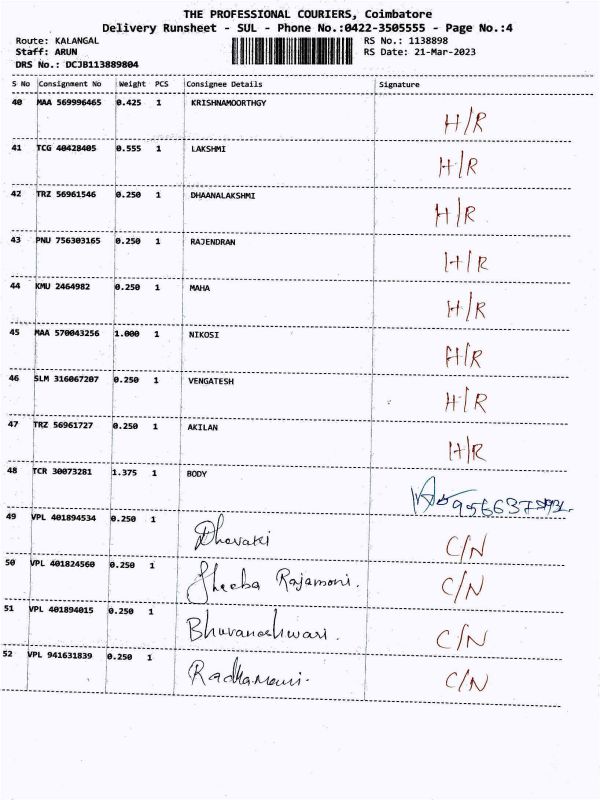 THE PROFESSIONAL COURIERS, Coimbatore
Delivery Runsheet - SUL - Phone No.:0422-3505555 - Page No.:4
Route: KALANGAL RS No.: 1138898
Staff: ARUN RS Date: 21-Mar-2023
DRS No.: DCJB113889804
S No Consignment No Weight PCS Consignee Details Signature
40 MAA 569996465 0.425 1 KRISHNAMOORTHGY H/R
41 TCG 40428405 0.555 1 LAKSHMI H/R
42 TRZ 56961546 0.250 1 DHAANALAKSHMI H/R
43 PNU 756303165 0.250 1 RAJENDRAN H/R
44 KMU 2464982 0.250 1 MAHA H/R
45 MAA 570043256 1.000 1 NIKOSI H/R
46 SLM 316067207 0.250 1 VENGATESH H/R
47 TRZ 56961727 0.250 1 AKILAN H/R
48 TCR 30073281 1.375 1 BODY
49 VPL 401894534 0.250 1 Dhevaki C/N
50 VPL 401824560 0.250 1 Sheeba Rajamoni. C/N
51 VPL 401894015 0.250 1 Bhuvaneshwari. C/N
52 VPL 941631839 0.250 1 Radhamani. C/N